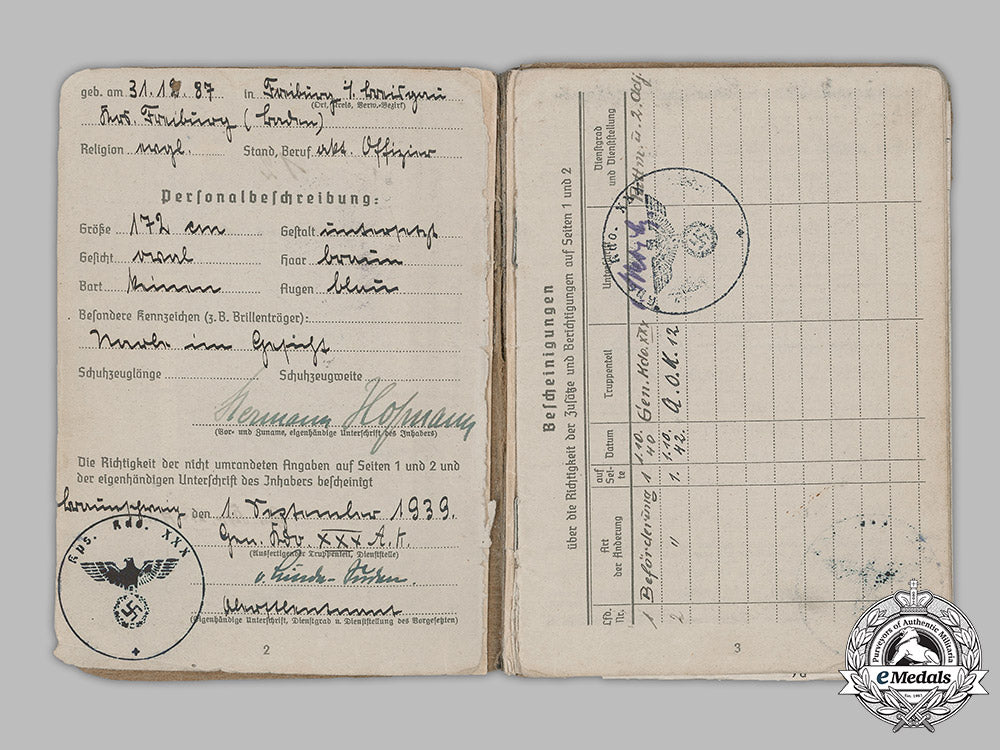 geb. am 31.12.87 in Freiburg i/. Breisgau
(Ort, Kreis, Verw.-Bezirk)
Krs. Freiburg (Baden)
Religion evgl. Stand, Beruf akt. Offizier
Personalbeschreibung:
Größe 172 cm Gestalt untersetzt
Gesicht oval Haar braun
Bart keinen Augen blau
Besondere Kennzeichen (z.B. Brillenträger):
Narbe im Gesicht
Schuhzeuglänge Schuhzeugweite
Hermann Hofmann
(Vor- und Zuname, eigenhändige Unterschrift des Inhabers)
Die Richtigkeit der nicht umrandeten Angaben auf Seiten 1 und 2 und
der eigenhändigen Unterschrift des Inhabers bescheinigt
Braunschweig den 1. September 1939.
Gen. Kdo XXX A.K.
(Ausfertigender Truppenteil, Dienststelle)
Oberstleutnant
(Eigenhändige Unterschrift, Dienstgrad u. Dienststellung des Vorgesetzten)
Gps. Kdo. XXX
2
Bescheinigungen
über die Richtigkeit der Zusätze und Berichtigungen auf Seiten 1 und 2
Lfd. Nr.
Art der Änderung
auf Sei-te
Datum
Truppenteil
Dienstgrad und Dienststellung
1 Beförderung 1 1.10.40 Gen. Kdo. XXX Rittm. u. 2. Adj.
2 " 1. 1.10.42. A.O.K. 12
Kdo. XXX
3
Purveyors of Authentic Militaria
eMedals
Est. 1967